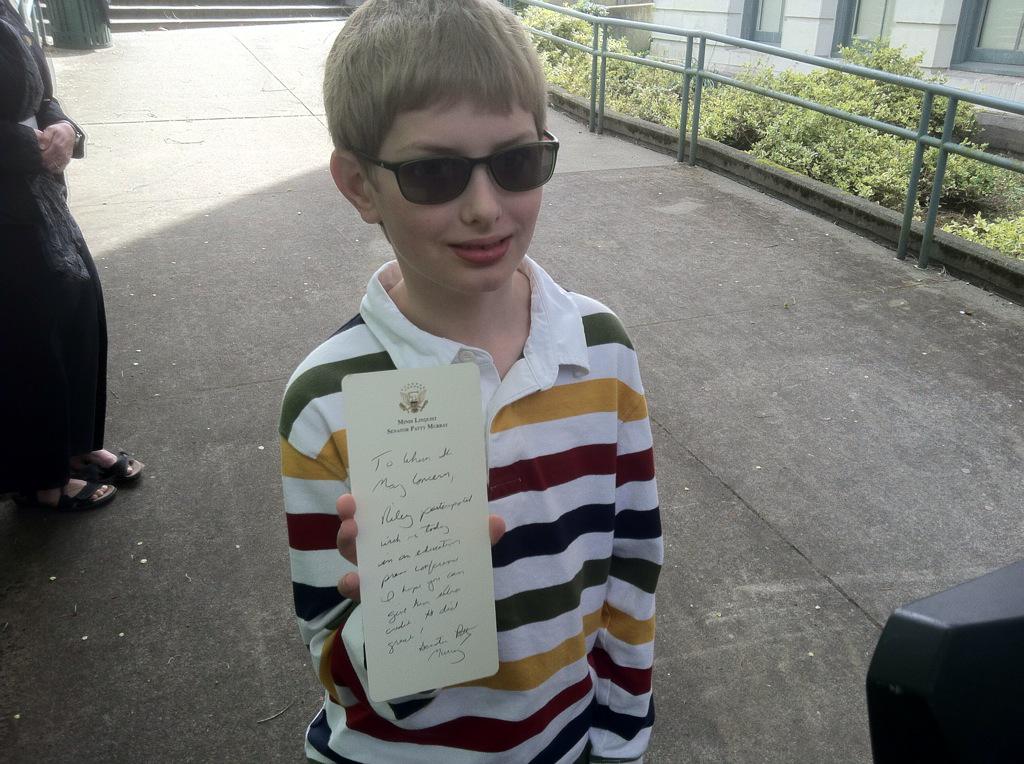 Minh Linquist
Senator Patty Murray
To Whom It
May Concern,
Riley participated
with us today
in an education
press conference
I hope you can
give him extra
credit. He did
great!
Senator Patty
Murray